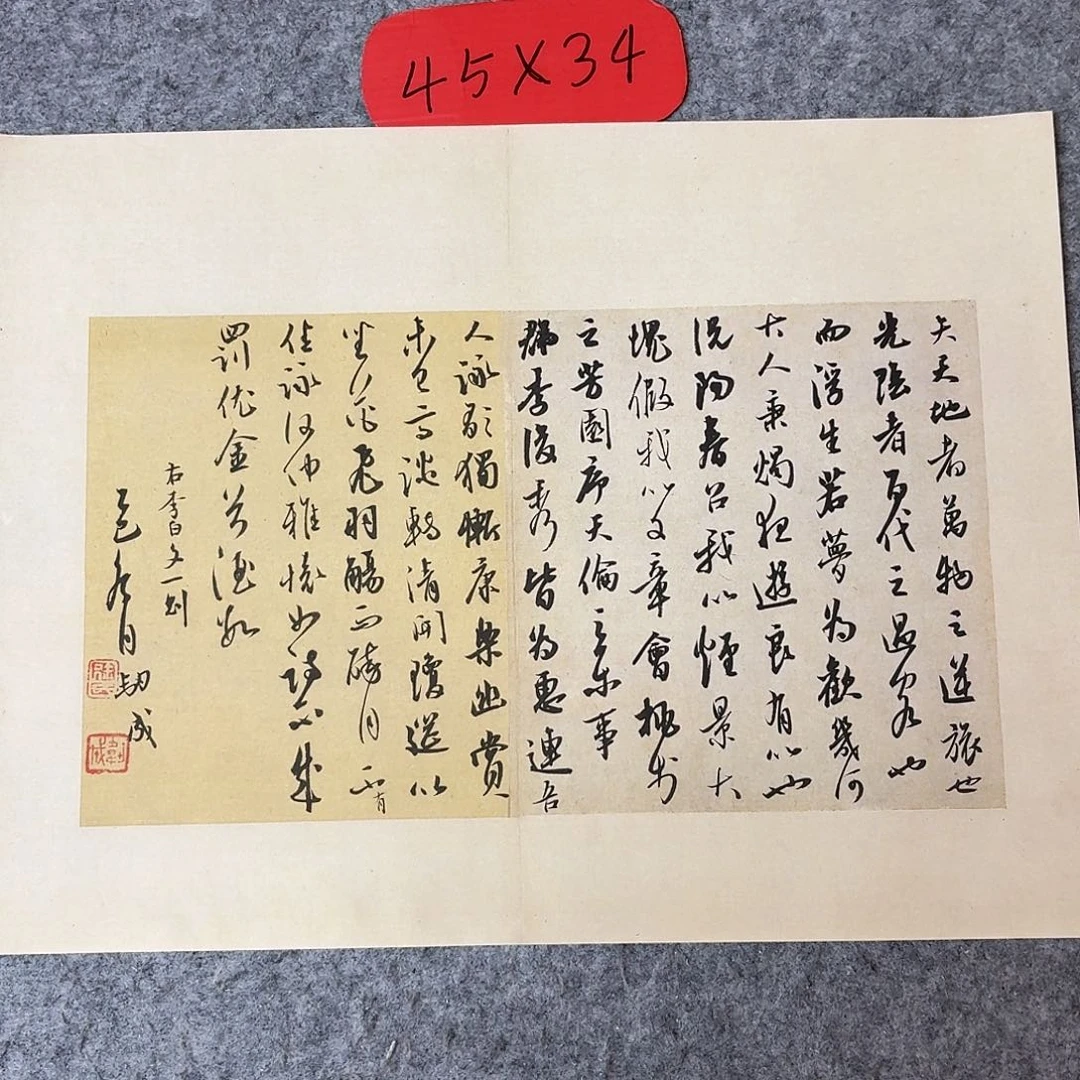 45X34
夫天地者萬物之逆旅也
光陰者百代之過客也
而浮生若夢為歡幾何
古人秉燭夜遊良有以也
況陽春召我以煙景大
塊假我以文章會桃李
之芳園序天倫之樂事
群季俊秀皆為惠連吾
人詠歌獨慚康樂幽賞
未已高談轉清開瓊筵以
坐花飛羽觴而醉月不有
佳詠何伸雅懷如詩不成
罰依金谷酒數
右李白文一則
冬月
成